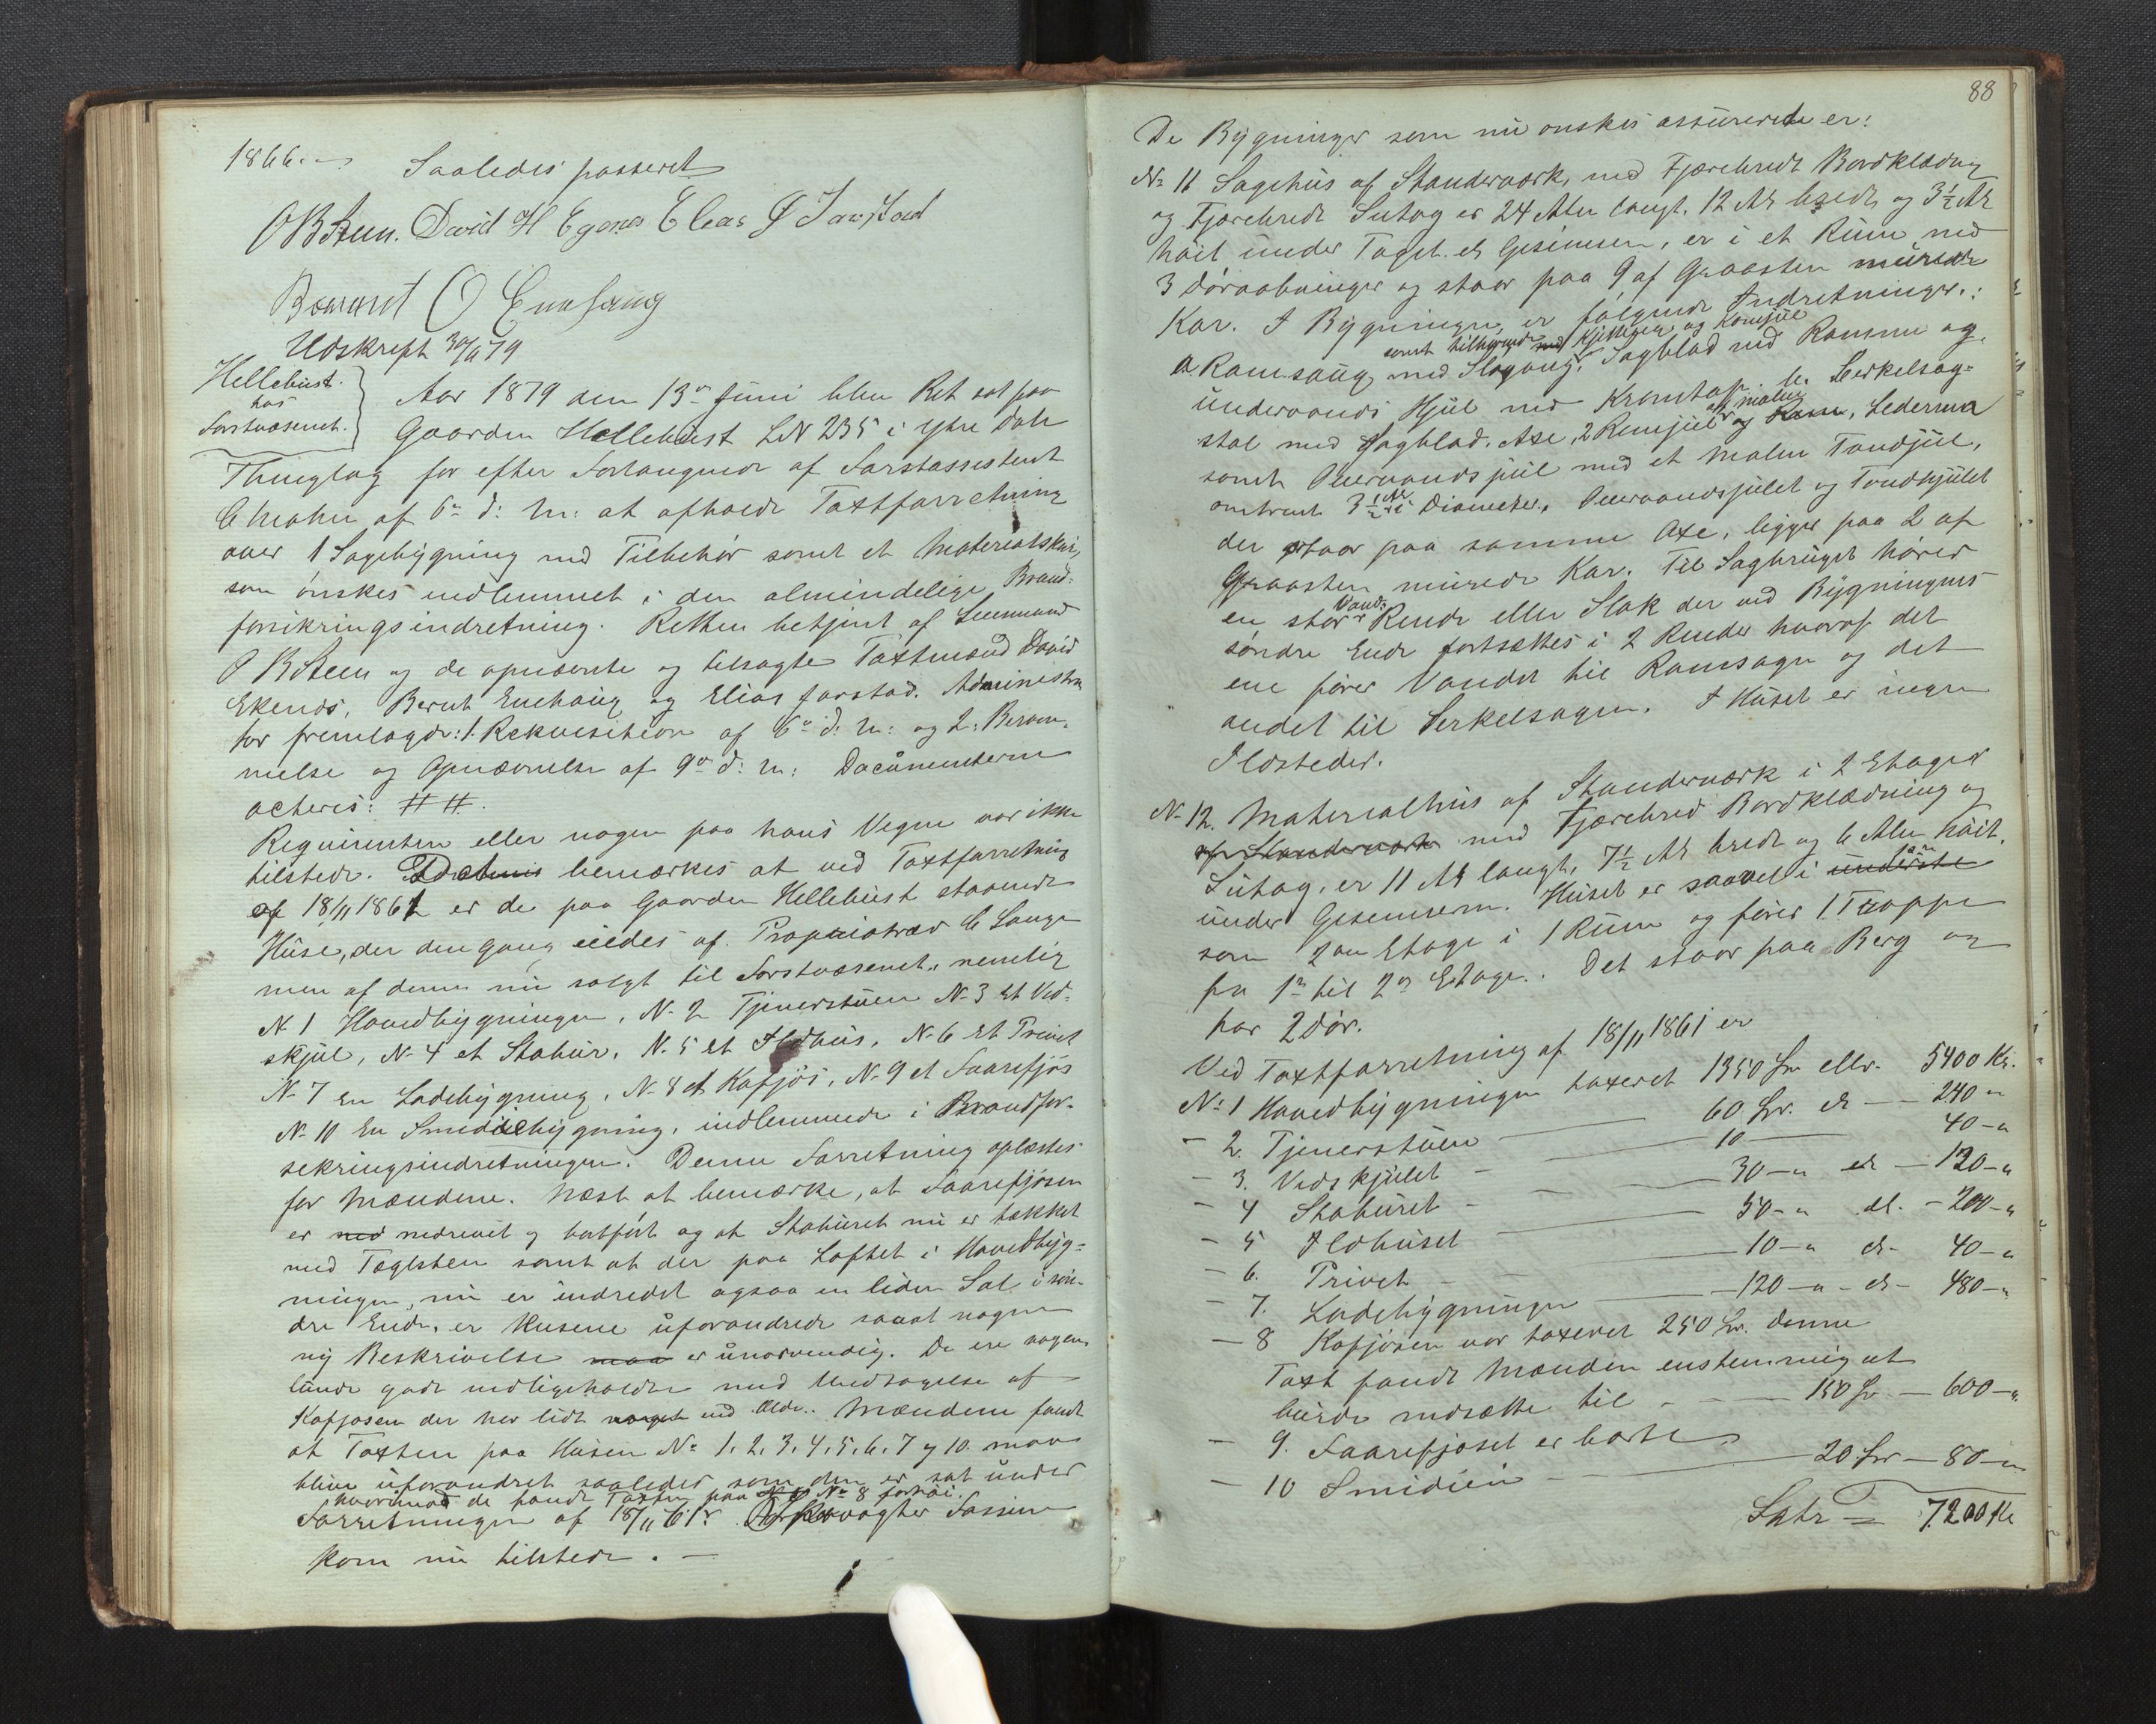 1866.
Saaledes passeret
OBSteen. David H Egenes Elias J Jarstad
Berent O Enehaug
Udskrift 30/6 79
Hellebust.
hos
Forstvæsenet.
Aar 1879 den 13de Juni blev Ret sat paa
Gaarden Hellebust LN 235 i ytre Dale
Thinglag for efter Forlangende af Forstassistent
C Mohn af 6te d: M: at afholde Taxtforretning
over 1 Sagebygning med Tilbehör samt et Materialskur,
som ønskes indlemmet i den almindelige Brand-
forsikringsindretning. Retten betjent af Lensmand
O B Steen og de opnævnte og tilsagte Taxtmænd David
Ekenæs, Bernt Enehaug og Elias Jarstad. Administra
tor fremlagde: 1. Rekvisition af 6te d: M: og 2: Beram-
melse og Opnævnelse af 9de d: M: Documenterne
acteres: # #.
Reqvirenten eller nogen paa hans Vegne var ikke
tilstede. bemærkes at ved Taxtforretning
af 18/11 1861 er de paa Gaarden Hellebust staaende
Huse, der den gang eiedes af Proprietær C Lange
men af denne nu solgt til Forstvæsenet, nemlig
N 1 Hovedbygningen, N. 2 Tjenerstuen N. 3 Et Ved-
skjul, N. 4 et Stabur, N. 5 Et Ildhus, N. 6 Et Privet
N. 7 En Ladebygning, N. 8 et Kofjös, N. 9 et Faarefjös
N. 10 En Smidiebygning, indlemmede i Brandfor-
sekringsindretningen. Denne Forretning oplæstes
for Mændene. Næst at bemærke, at Faarefjösen
er ned nedrevet og bortfört og at Staburet nu er tækket
med Taglsten samt at der paa Loftet i Hovedbyg-
ningen, nu er indredet ogsaa en liden Sal i søn-
dre Ende, er Husene uforandrede saaat nogen
ny Beskrivelse maa er unødvendig. De ere nogen-
lunde godt vedligeholdte med Undtagelse af
Kofjøsen der har lidt noget ved Ælde. Mændene fandt
at Taxten paa Husene No 1. 2. 3. 4. 5. 6. 7 og 10. maa
blive uforandret saaledes som den er sat under
hvorimod de fandt Taxten paa No 8 forhøi.
Forretningen af 18/11 61. Skovvogter
kom nu tilstede. —
88
De Bygninger som nu ønskes assurerede er:
No 11 Sagehus af Standerværk, med Fjærebredt Bordklædning
og Fjærebredt Sutag er 24 Alen langt. 12 Al bredt og 3½ Al
høit under Taget el Gesimsen, er i et Rum med
3 Döraabninger og staar paa 9 af Graasten murede
Kar. I Bygningen er fölgende Indretninger.:
samt tilhørende med Kjettinger og Kamhjul
a Ramsaug med Slagong, Sagblad med Ramme og
undervands Hjul med Kramtap. b. Serkelsag-
stal med Sagblad. Axe, 2 Remhjul af malm og Rem, Lederrem
samt Overvandshjul med et Malm Tandhjul,
omtrent 3½ Al i Diameter, Overvandshjulet og Tandhjulet
der staar paa samme Axe, ligger paa 2 af
Graasten murede Kar. Til Sagbruget hører
en stor Vand- Rende eller Slok der ved Bygningens
söndre Ende fortsættes i 2 Render hvoraf det
ene förer Vandet til Ramsagen og det
andet til Serkelsagen. I Huset er ingen
Ildsteder.
N. 12. Materialhus af Standerværk i 2 Etager
af Standerværk med Fjærebred Bordklædning og
Sutag, er 11 Al langt, 7½ Al bredt og 6 Alen høit.
under Gesemserne. Huset er saavel i underste 1ste
som 2den Etage i 1 Rum og förer 1. Trappe
fra 1ste til 2den Etage. Det staar paa Berg og
har 2 dör.
Ved Taxtforretning af 18/11 1861 er
No 1 Hovedbygningen taxeret 1350 Spr eller 5400 Kr.
— 2. Tjenerstuen — 60 Spr. el — 240 "
— 3. Vedskjulet — 10 — 40 — "
— 4 Staburet — 30 — " el — 120 — "
— 5 Ildhuset — 50 — " el. — 200 — "
— 6. Privet — 10 — " el — 40 — "
— 7. Ladebygningen — 120 — " — el — 480 — "
— 8 Kofjösen var taxeret 250 Spr. denne
Taxt fandt Mændene enstemmig at
burde nedsætte til — 150 Spr — 600 — "
— 9. Faarefjöset er borte
— 10 Smidien — 20 Spr — 80 — "
Latr = 7200 Kr